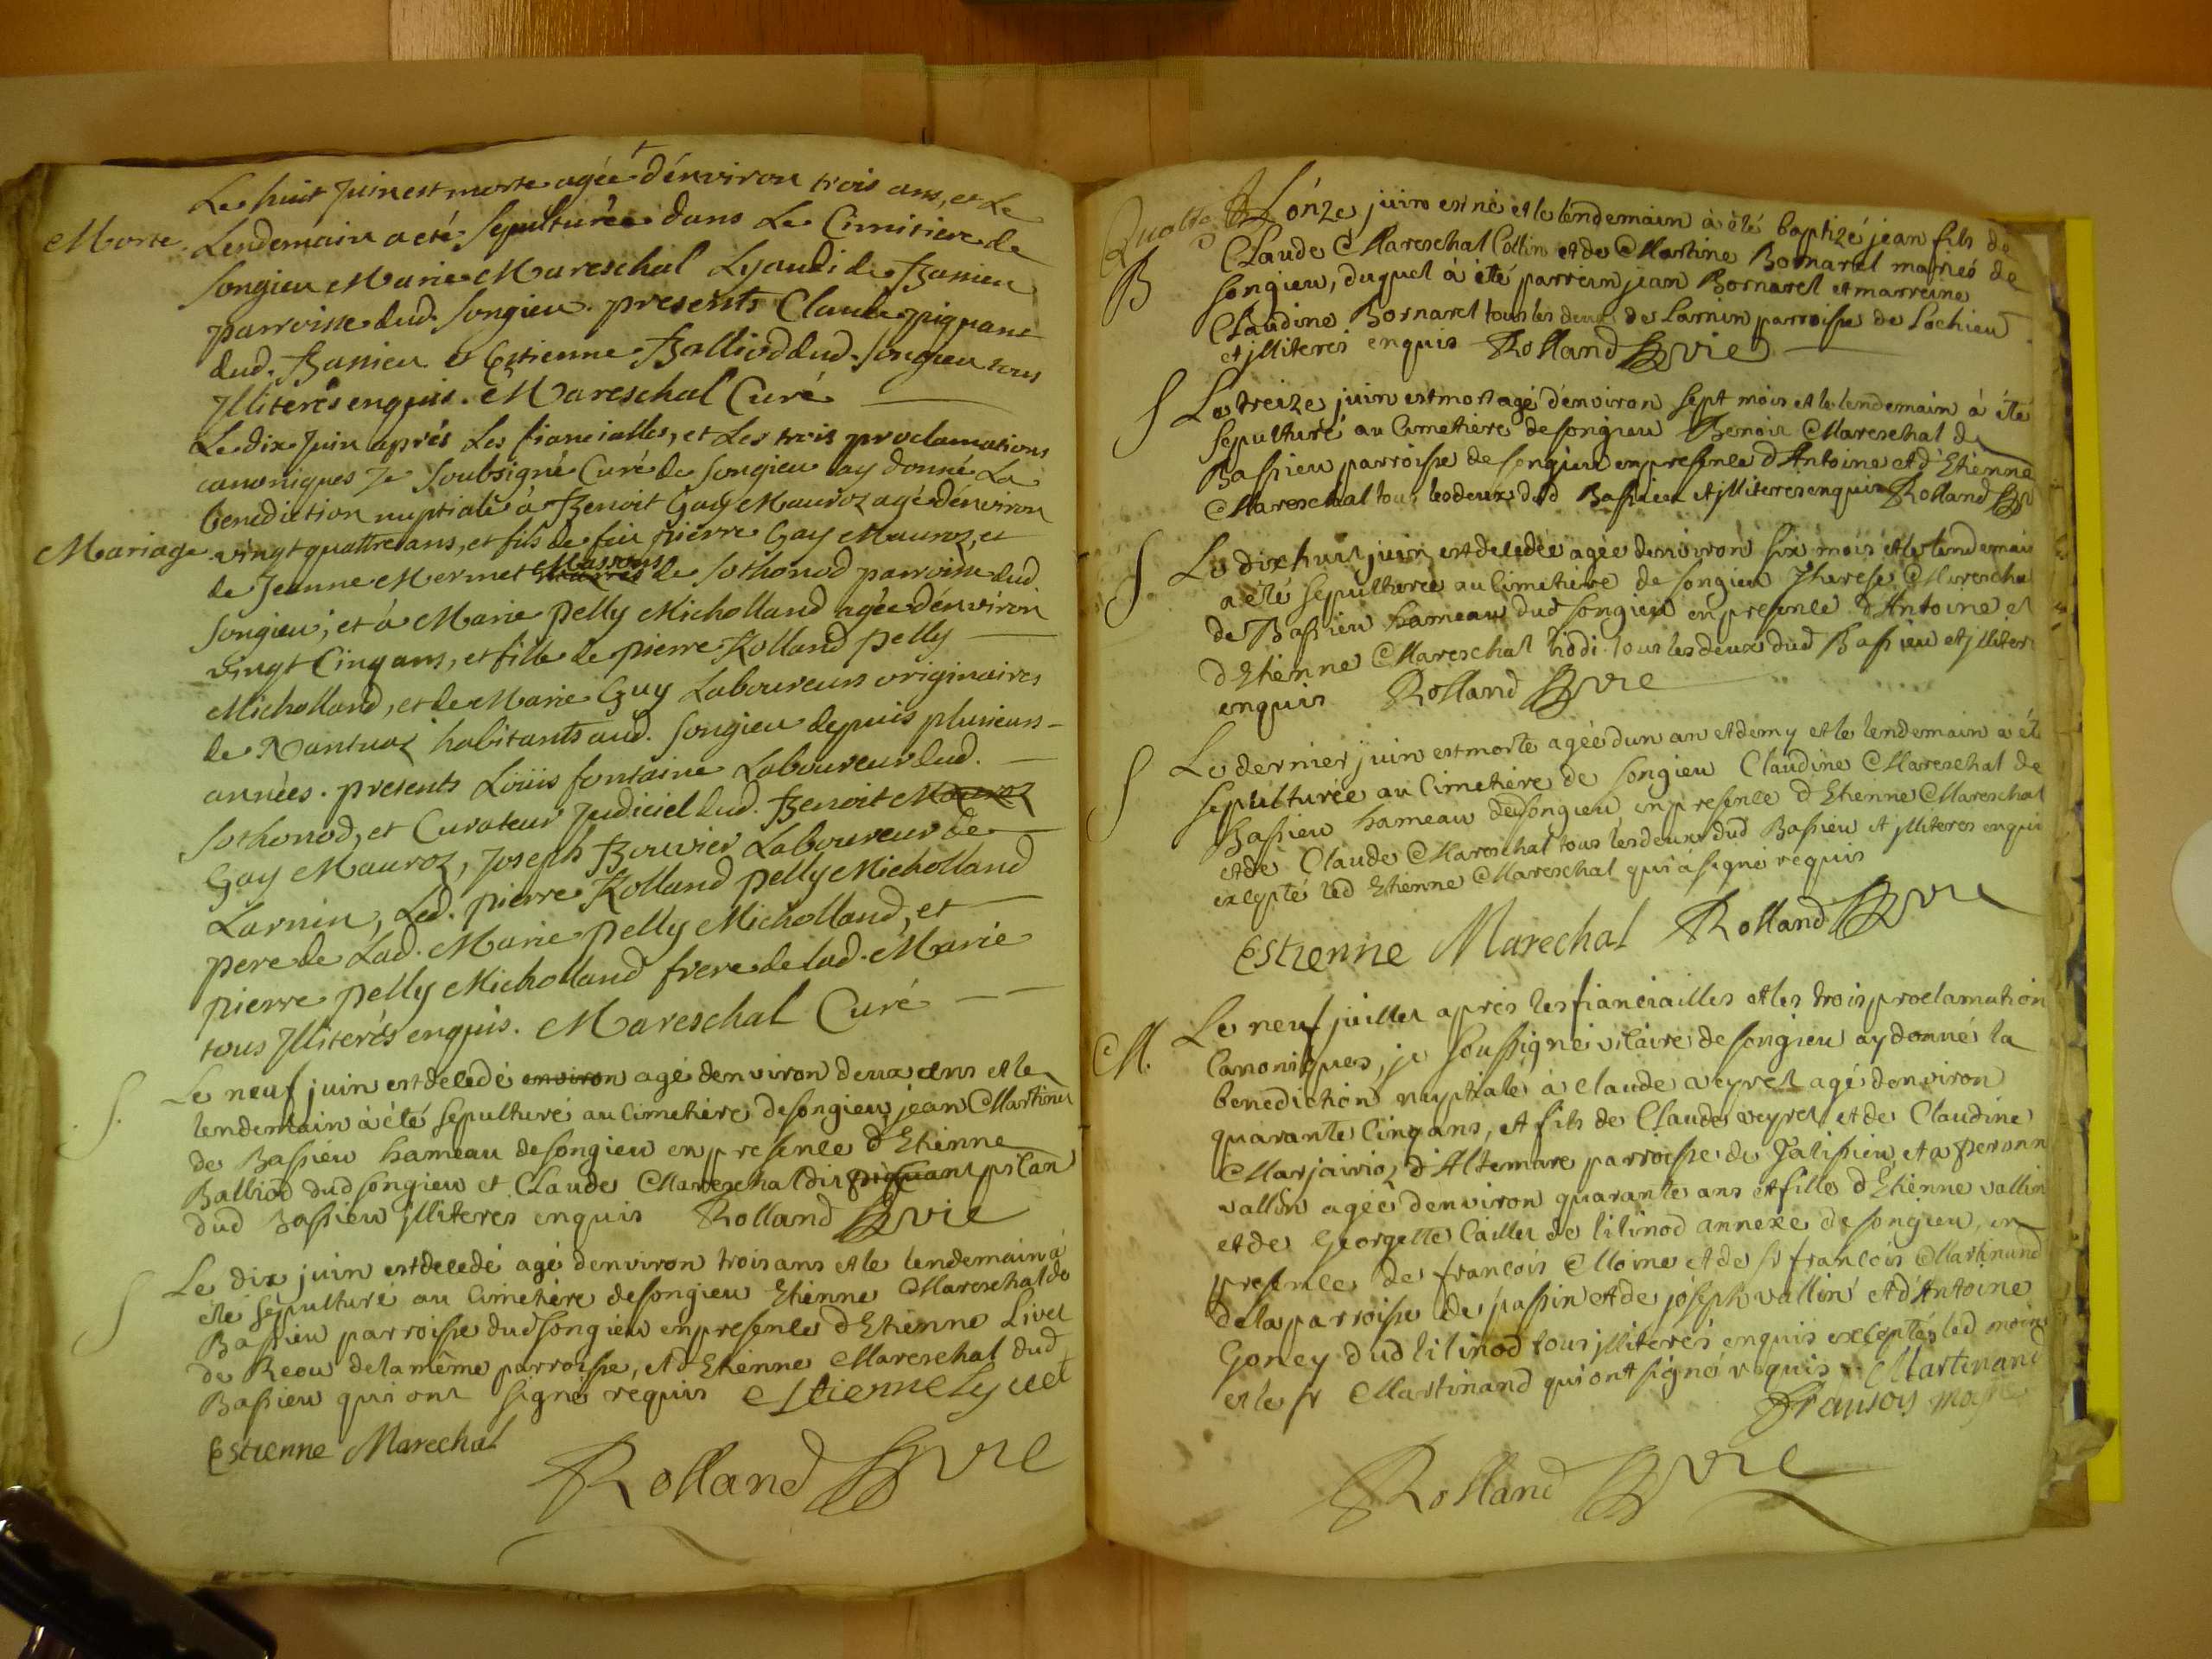 Le huit Juin est morte agée d'énviron trois ans, et Le
Morte. Lendemain a eté Sepulturée dans Le Cimitiere de
Songieu Marie Mareschal Lyaudi de Bassieu
parroisse dud. Songieu. presents Claude pignant
dud. Bassieu et Estienne Balliod dud. Songieu tous
Jlliterés enquis. Mareschal Curé
Le dix Juin aprés Les fiancialles, et Les trois proclamations
canoniques Je Soubsigné Curé de Songieu ay donné La
benediction nuptiale à Benoit Gay Mauroz agé dénviron
Mariage vingt quattre ans, et fils de feu pierre Gay Mauroz, et
de Jeanne Mermet Massons de Sothonod parroisse dud.
Songieu; et à Marie pelly Micholland agée dénviron
vingt Cinq ans, et fille de pierre Rolland pelly
Micholland, et de Marie Guy Laboureurs originaires
de Nantuaz habitants aud. Songieu depuis plusieurs
années. presents Loüis fontaine Laboureur dud.
Sothonod, et Curateur Judiciel dud. Benoit Mauroz
Gay Mauroz, Joseph Bouvier Laboureur de
Larnin, Led. pierre Rolland pelly Micholland
pere de Lad. Marie pelly Micholland, et
pierre pelly Micholland frere de lad. Marie
tous Jlliterés enquis. Mareschal Curé
S. Le neuf juin est decedé environ agé denviron deux ans et le
lendemain à été sepulturé au cimetière de songieu jean Martinet
de Bassieu hameau de songieu en presence d'Etienne
Balliod dud songieu et Claude Mareschal dit piquant pilan
dud Bassieu jlliteres enquis Rolland vic
S Le dix juin est decedé agé denviron trois ans et le lendemain à
été sepulturé au cimetière de songieu Etienne Mareschal de
Bassieu parroisse dud songieu en presence d'Etienne Livet
de Reou de la même parroisse, et d'Etienne Mareschal dud
Bassieu qui ont signé requis Estienne Lyvet
Estienne Marechal
Rolland vic
Quatte L'ónze juin est né et le lendemain à été baptizé jean fils de
B Claude Mareschal Collin et de Martine Bornarel mariés de
Songieu, duquel à été parrein jean Bornarel et marreine
Claudine Bornarel tous les deux de Larnin parroisse de Lochieu
et jlliterés enquis Rolland vic
S Le treize juin est mort agé d'énviron sept mois et le lendemain à été
sepulturé au Cimetière de songieu Benoit Mareschal de
Bassieu parroisse de songieu en presence d'Antoine et d'Etienne
Mareschal tous les deux dud Bassieu et jlliteres enquis Rolland
S. Le dix huit juin est decedée agée denviron six mois et le lendemain
a été sepulturée au Cimetière de songieu Therese Mareschal
de Bassieu hameau dud songieu en presence d'Antoine et
d'Etienne Mareschal lidi tous les deux dud Bassieu et jlliter
enquis Rolland vic
S Le dernier juin est morte agée dun an et demy et le lendemain à été
sepulturée au Cimetière de songieu Claudine Mareschal de
Bassieu hameau de songieu, en presence d'Etienne Mareschal
et de Claude Mareschal tous les deux dud Bassieu et jlliteres enquis
excepté led Etienne Mareschal qui à signé requis
Estienne Marechal Rolland vic
M. Le neuf juillet après les fianciailles et les trois proclamation
Canoniques, je soussigné vicaire de songieu ay donné la
benediction nuptiale à Claude veyret agé denviron
quarante cinq ans, et fils de Claude veyret et de Claudine
Marjairioz d'Altemare parroisse de Talissieu, et a peronn
vallin agée denviron quarante ans et fille d'Etienne vallin
et de Georgette Caillet de lilinod annexe de songieu, en
presence de françois Moine et de sr françois Martinand
de la parroisse de passin et de jóseph vallin et d'Antoine
Goney dud lilinod tous jlliterés enquis exceptés led moine
et le sr Martinand qui ont signé requis Martinand
fransoys
Rolland vic